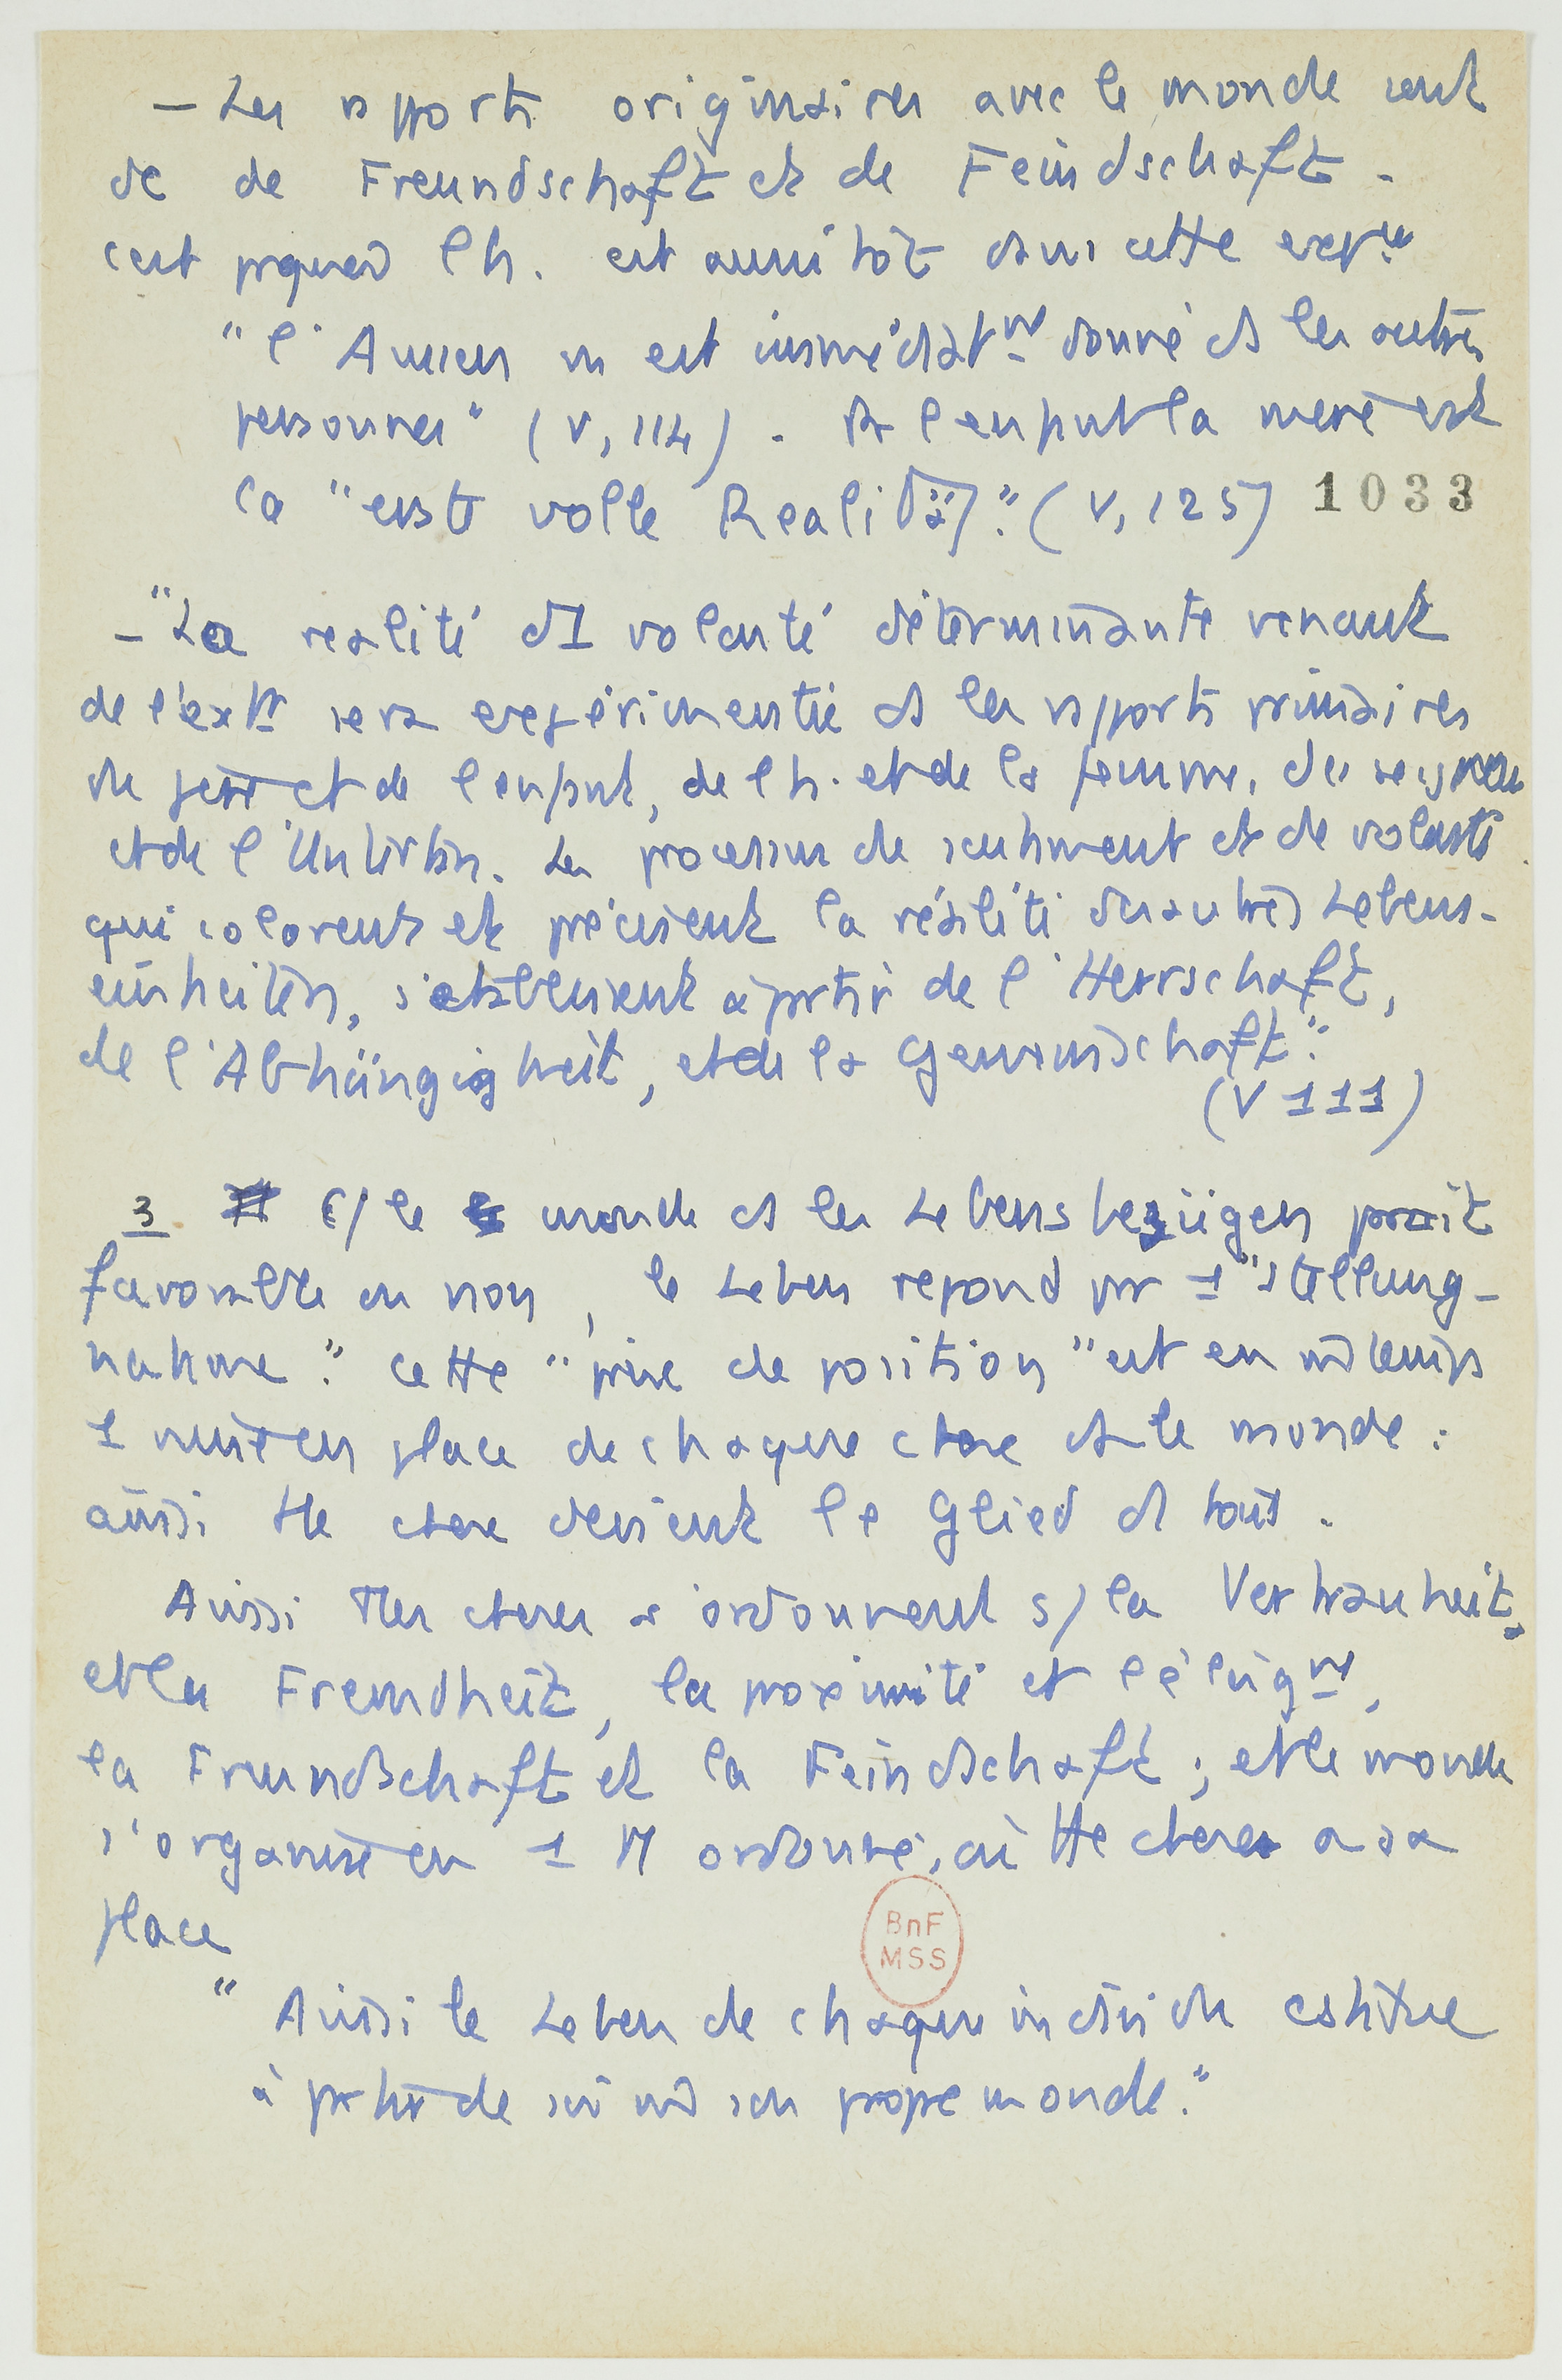 – Les rpports originaires avec le monde sont
de de Freundschaft et de Feindschaft.
C'est pquoi l'h. est aussitôt dans cette exp.ce
"l'Aussen ns est immédiatmt donné ds les autres
personnes" (V, 114). Pr l'enfant la mère est
la "erste volle Realität". (V, 125) 1033
– "La réalité d'1 volonté déterminante venant
de l'extr sera expérimentée ds les rpports primaires
du père et de l'enfant, de l'h. et de la femme, du seigneur
et de l'Untertan. Les processus de sentiment et de volonté
qui colorent et précisent la réalité des autres Lebens-
einheiten, s'établissent à prtir de l'Herrschaft,
de l'Abhängigkeit, et de la Gemeinschaft".
(V 111)
3 C/ le monde ds les Lebensbezügen prait
favorable ou non, le Leben répond pr 1 "Stellung-
nahme". Cette "prise de position" est en m̂ temps
1 mise en place de chaque chose ds le monde :
ainsi tte chose devient le Glied d'1 tout.
Aussi ttes choses s'ordonnent s/ la Vertrautheit,
et la Fremdheit, la proximité et l'éloignmt,
la Freundschaft et la Feindschaft ; et le monde
s'organise en 1 M ordonné, où tte chose a sa
place
BnF
MSS
"Ainsi le Leben de chaque individu constitue
à prtir de soi m̂ son propre monde."